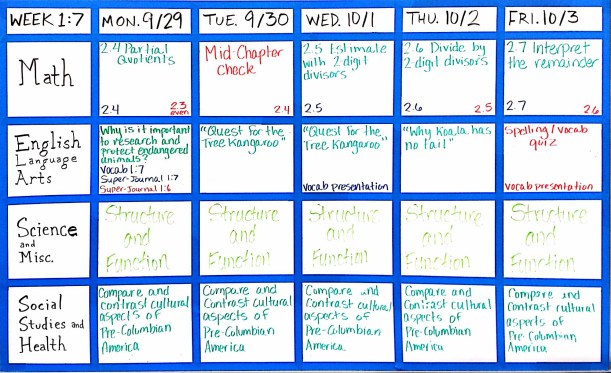 WEEK 1:7
MON. 9/29
TUE. 9/30
WED. 10/1
THU. 10/2
FRI. 10/3
Math
2.4 Partial
Quotients
2.4
2.3
even
Mid-Chapter
Check
2.4
2.5 Estimate
with 2 digit
divisors
2.5
2.6 Divide by
2 digit divisors
2.6
2.5
2.7 Interpret
the remainder
2.7
2.6
English
Language
Arts
Why is it important
to research and
protect endangered
animals?
Vocab 1:7
Super-Journal 1:7
Super-Journal 1:6
"Quest for the
Tree Kangaroo"
"Quest for the
Tree Kangaroo"
vocab presentation
"Why Koala has
no tail"
Spelling/vocab
quiz
vocab presentation
Science
and
Misc.
Structure
and
Function
Structure
and
Function
Structure
and
Function
Structure
and
Function
Structure
and
Function
Social
Studies and
Health
Compare and
contrast cultural
aspects of
Pre-Columbian
America
Compare and
Contrast cultural
aspects of
Pre-Columbian
America
Compare and
Contrast cultural
aspects of
Pre-Columbian
America
Compare and
Contrast cultural
aspects of
Pre-Columbian
America
Compare and
Contrast cultural
aspects of
Pre-Columbian
America